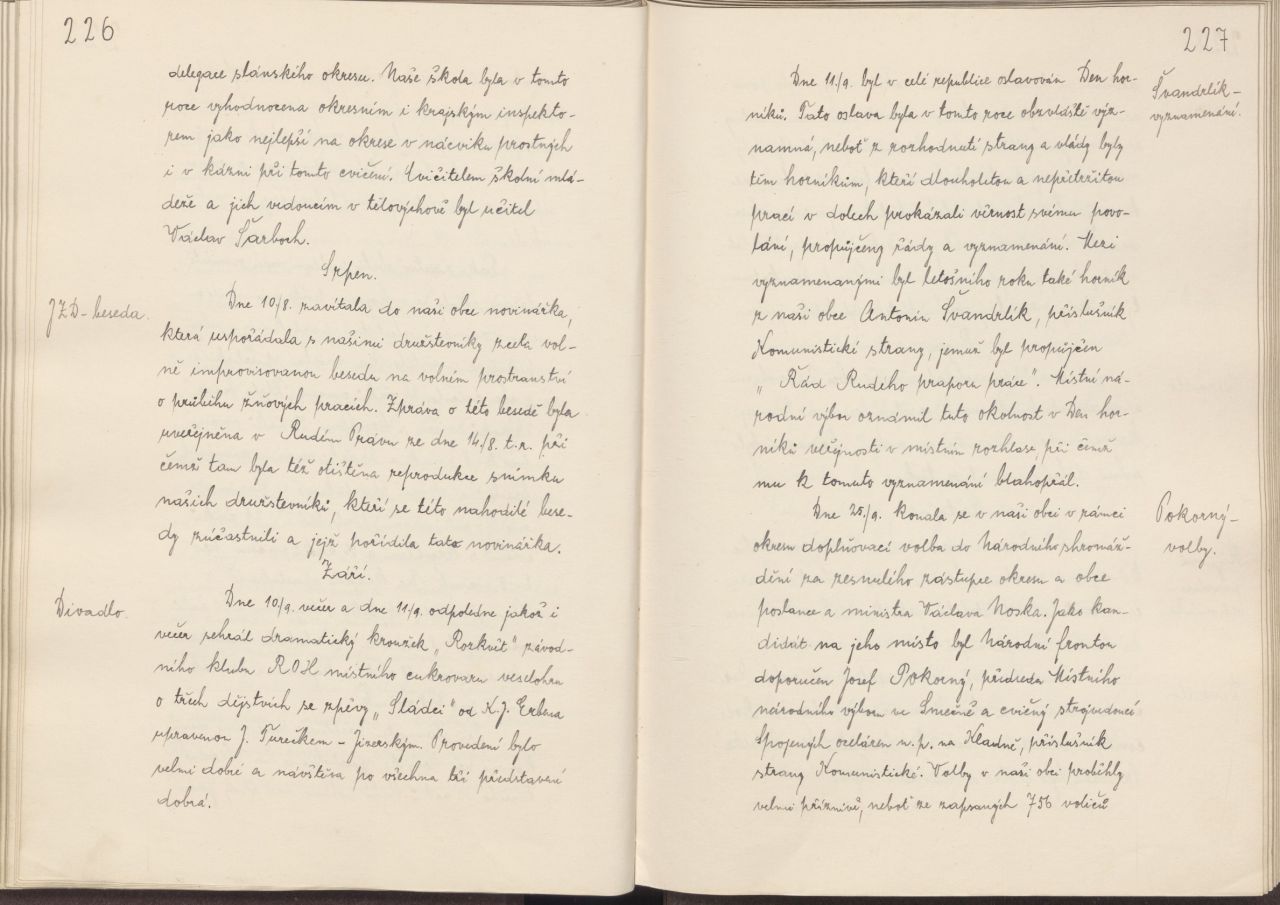 226
delegace slánského okresu. Naše škola byla v tomto
roce vyhodnocena okresním i krajským inspekto-
rem jako nejlepší na okrese v nácviku prostných
i v kázni při tomto cvičení. Cvičitelem školní mlá-
deže a jich vedoucím v tělovýchově byl učitel
Václav Šarboch.
Srpen.
JZD - beseda.
Dne 10./8. zavítala do naší obce novinářka,
která uspořádala s našimi družstevníky zcela vol-
ně improvisovanou besedu na volném prostranství
o průběhu žňových pracích. Zpráva o této besedě byla
uveřejněna v Rudém Právu ze dne 14./8. t.r. při
čemž tam byla též otištěna reprodukce snímku
našich družstevníků, kteří se této nahodilé bese-
dy zúčastnili a jejž pořídila tato novinářka.
Září.
Divadlo.
Dne 10./9. večer a dne 11./9. odpoledne jakož i
večer sehrál dramatický kroužek „Rozkvět" závod-
ního klubu ROH místního cukrovaru veselohru
o třech dějstvích se zpěvy „Sládci" od K. J. Erbena
upravenou J. Turečkem - Jizerským. Provedení bylo
velmi dobré a návštěva po všechna tři představení
dobrá.
227
Švandrlík -
vyznamenání.
Dne 11./9. byl v celé republice oslavován Den hor-
níků. Tato oslava byla v tomto roce obzvláště výz-
namná, neboť z rozhodnutí strany a vlády byly
těm horníkům, kteří dlouholetou a nepřetržitou
prací v dolech prokázali věrnost svému povo-
lání, propůjčeny řády a vyznamenání. Mezi
vyznamenanými byl letošního roku také horník
z naší obce Antonín Švandrlík, příslušník
Komunistické strany, jemuž byl propůjčen
„Řád Rudého praporu práce". Místní ná-
rodní výbor oznámil tuto okolnost v Den hor-
níků veřejnosti v místním rozhlase, při čemž
mu k tomuto vyznamenání blahopřál.
Pokorný -
volby.
Dne 25./9. konala se v naší obci v rámci
okresu doplňovací volba do Národního shromáž-
dění za zesnulého zástupce okresu a obce
poslance a ministra Václava Noska. Jako kan-
didát na jeho místo byl Národní frontou
doporučen Josef Pokorný, předseda Místního
národního výboru ve Smečně a cvičný strojvedoucí
Spojených oceláren n. p. na Kladně, příslušník
strany Komunistické. Volby v naší obci proběhly
velmi příznivě, neboť ze zapsaných 756 voličů